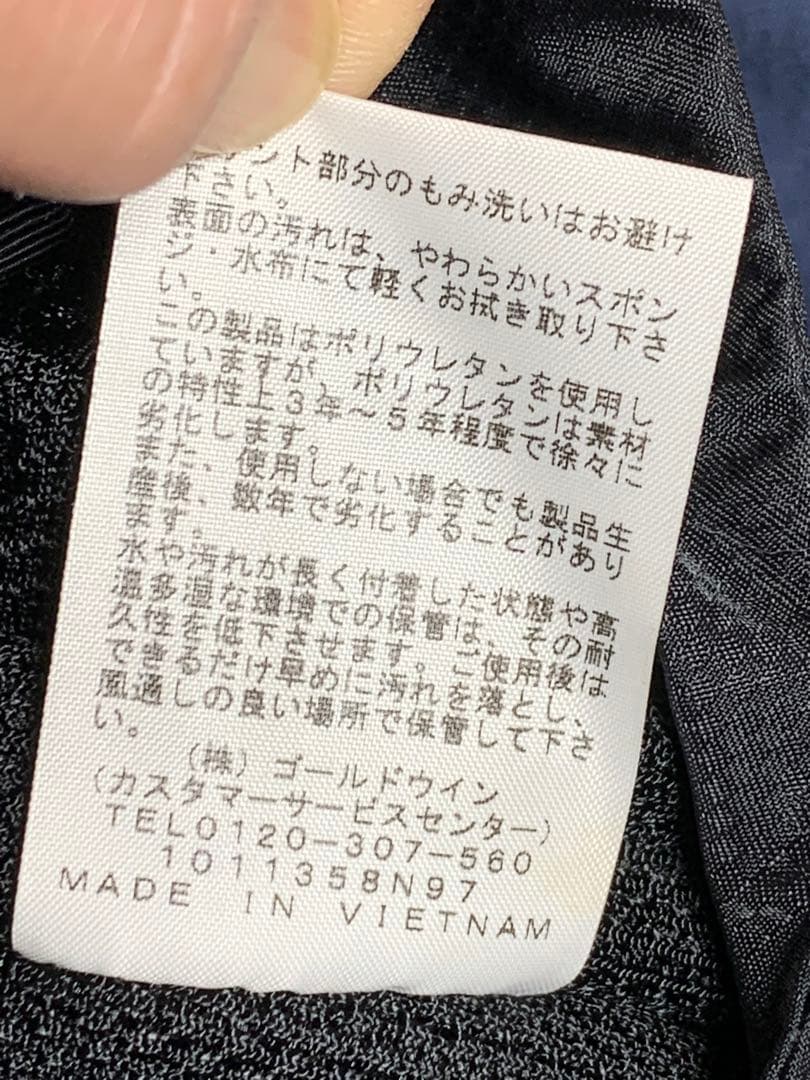 ント部分のもみ洗いはお避け
下さい。
表面の汚れは、やわらかいスポン
ジ・水布にて軽くお拭き取り下さ
い。
この製品はポリウレタンを使用し
ていますが、ポリウレタンは素材
の特性上3年〜5年程度で徐々に
劣化します。
また、使用しない場合でも製品生
産後、数年で劣化することがあり
ます。
水や汚れが長く付着した状態や高
温多湿な環境での保管は、その耐
久性を低下させます。ご使用後は
できるだけ早めに汚れを落とし、
風通しの良い場所で保管して下さ
い。
(株)ゴールドウイン
(カスタマーサービスセンター)
TEL0120-307-560
1011358N97
MADE IN VIETNAM